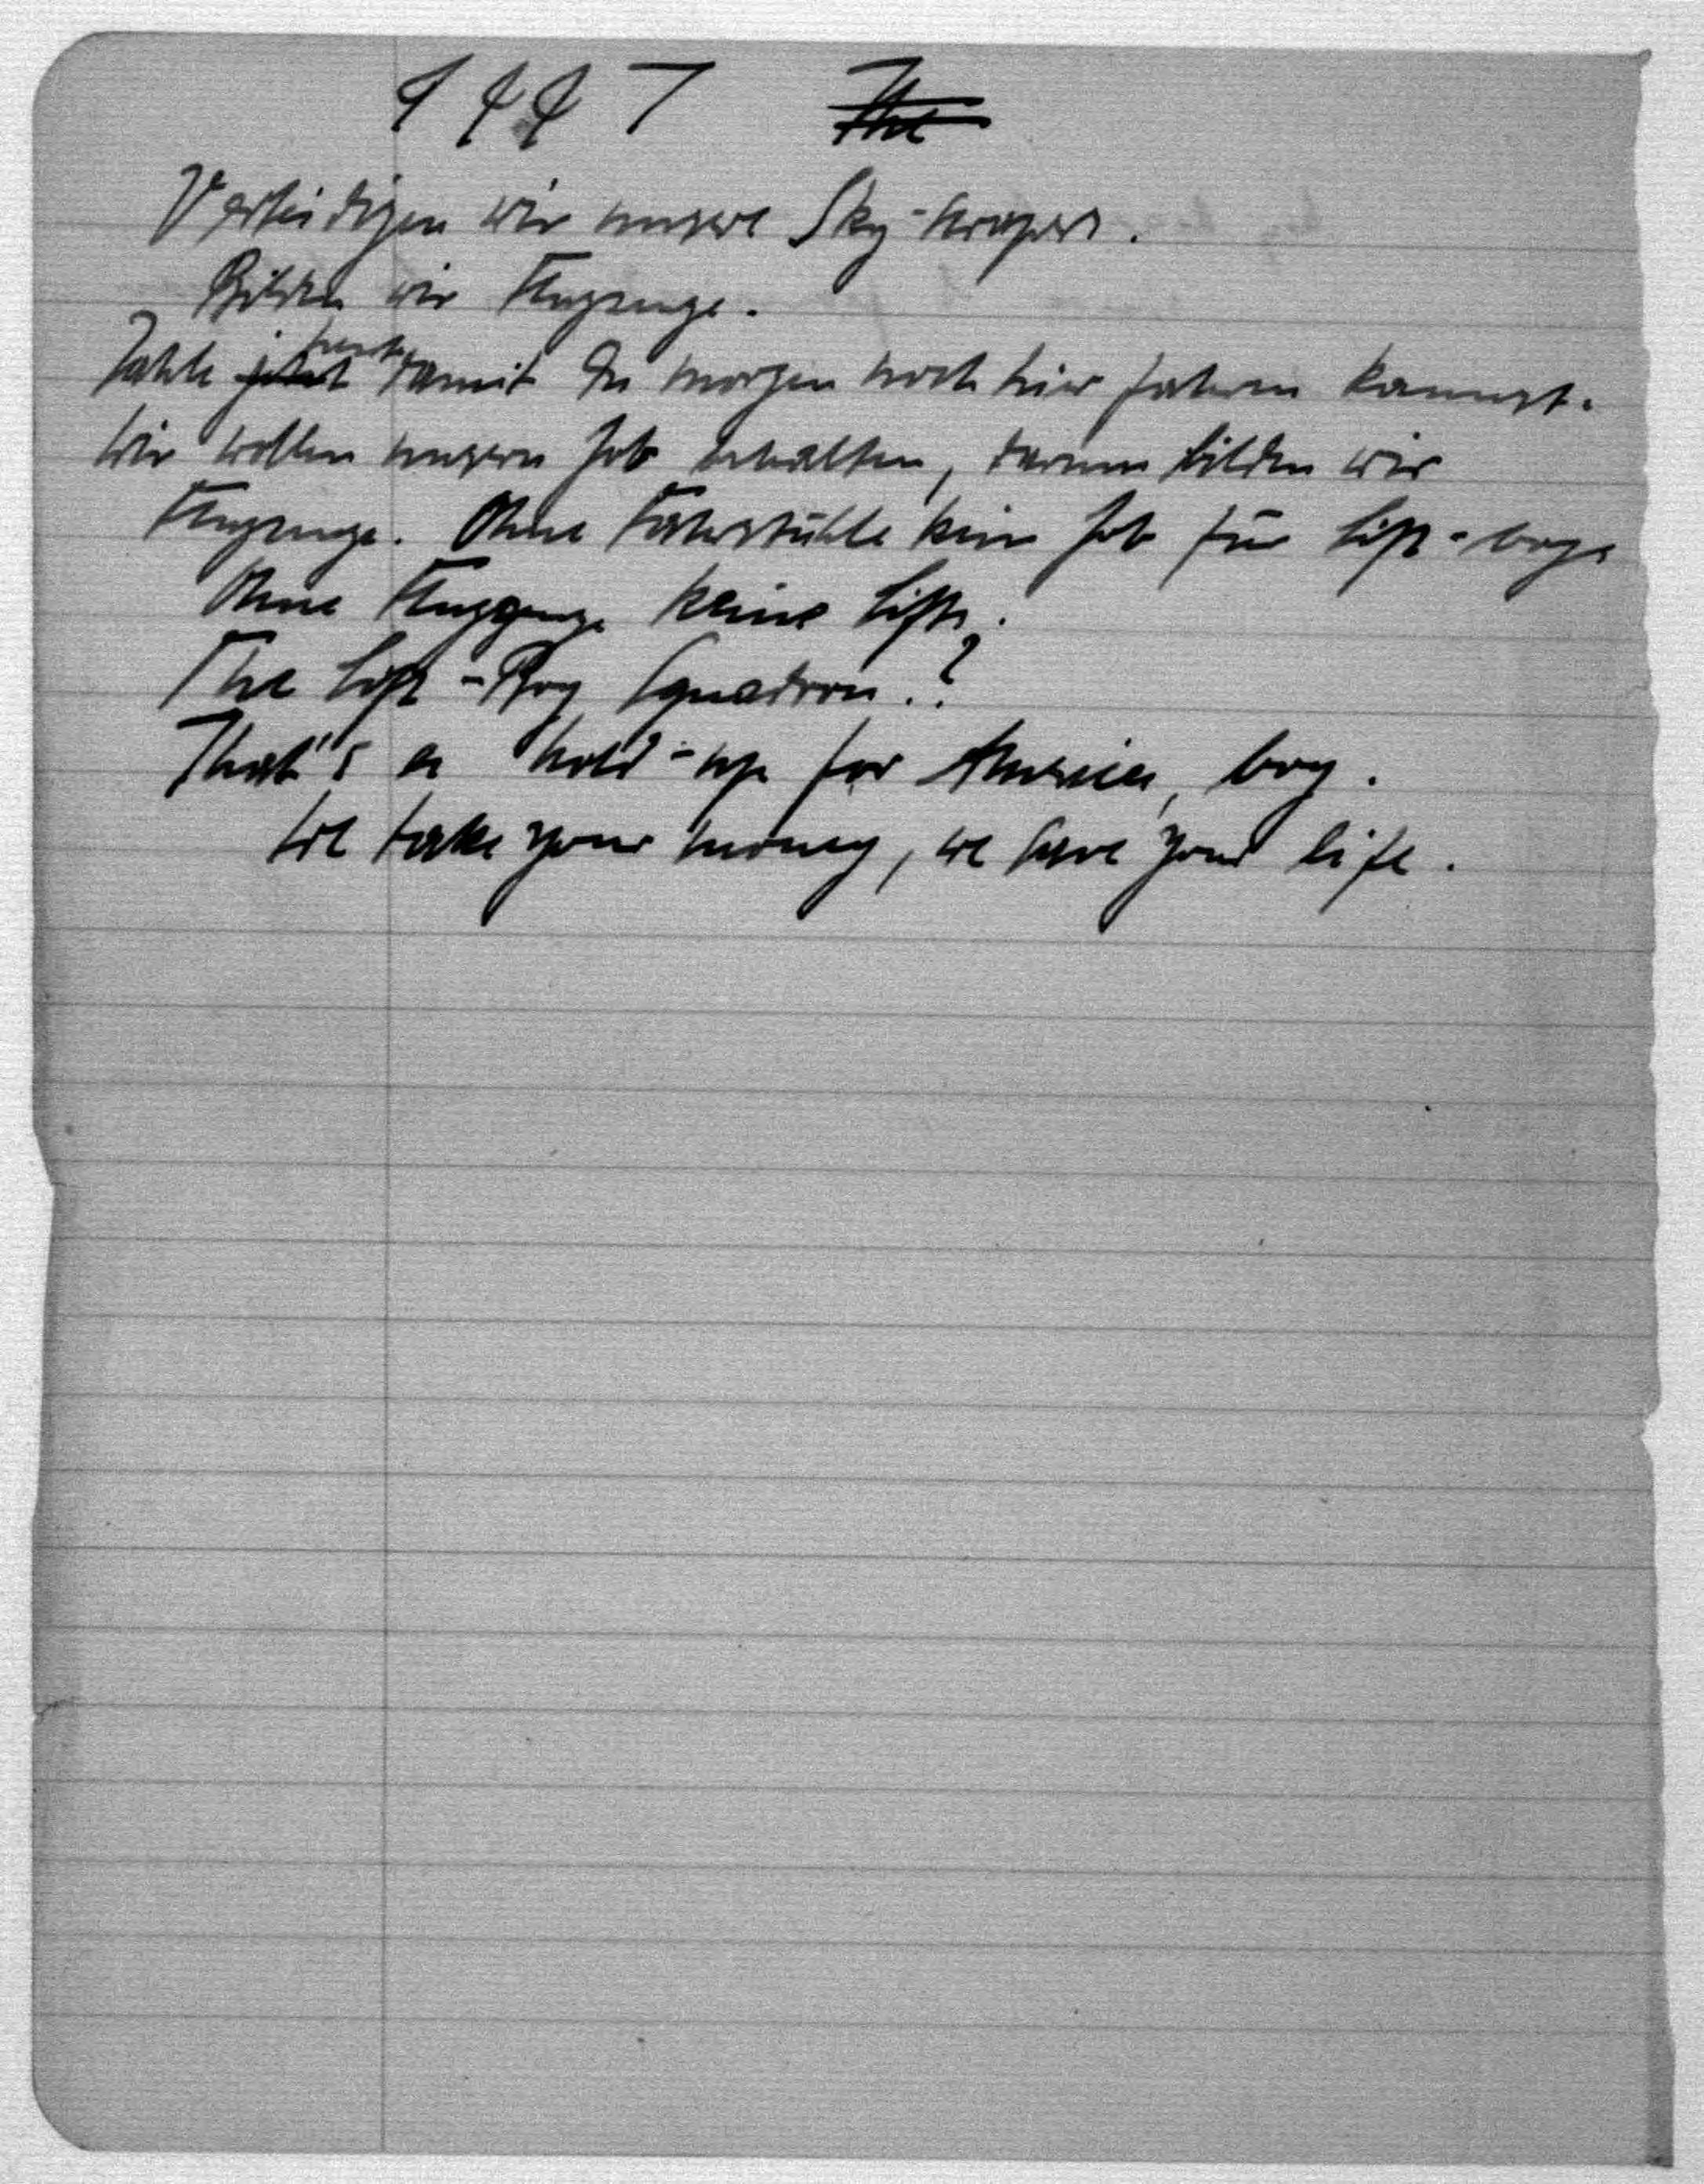 Verteidigen wir unsere Sky-scrapers.
Bilden wir Flugzeuge.
heute
Zahle jetzt damit Du morgen noch hier fahren kannst.
Wir wollen unsern Job behalten, darum bilden wir
Flugzeuge. Ohne Fahrstühle kein Job für Lift-boys
Ohne Flugzeuge keine Lifts.
The Lift-Boy Squadron.?
That's a hold-up for America, boy.
We take your money, we save your life.